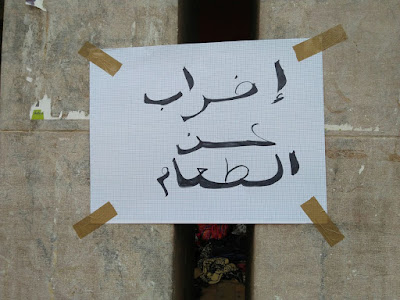 إضراب
عن
الطعام